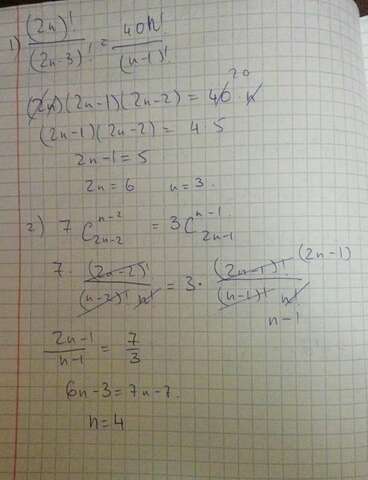 1) (2n)! / (2n-3)! = 40n! / (n-1)!
(2n)(2n-1)(2n-2) = 40 · n 20
(2n-1)(2n-2) = 4·5
2n-1=5
2n=6 n=3.
2) 7 C_{2n-2}^{n-2} = 3 C_{2n-1}^{n-1}
7 · (2n-2)! / (n-2)! n! = 3 · (2n-1)! (2n-1) / (n-1)! n!
n-1
2n-1 / n-1 = 7 / 3
6n-3=7n-7.
n=4